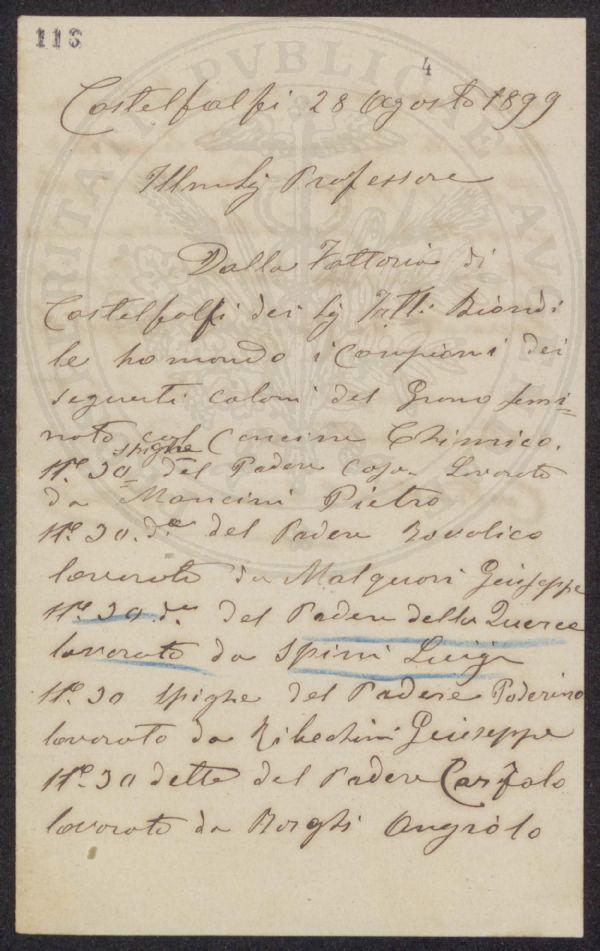 113
4
Castelfalfi 28 Agosto 1899
Illmo Sig Professore
Dalla Fattoria di
Castelfalfi dei Sig Fatt: Biondi
le ho mondo i Campioni dei
seguenti coloni del Grano semi=
nato col Concime Chimico.
spighe
N.º 30 del Podere Casa Lavorato
da Mancini Pietro
N.º 30. d.e del Podere
lavorato da Malquori Giuseppe
N.º 30. d.e del Podere della Querce
lavorato da Spini Luigi
N.º 30 spighe del Podere Poderino
lavorato da Ribechini Giuseppe
N.º 30 dette del Podere
lavorato da Borghi Angiolo